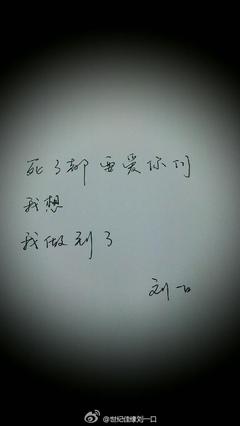 死了都要爱你们
我想
我做到了
刘一口
@世纪佳缘刘一口